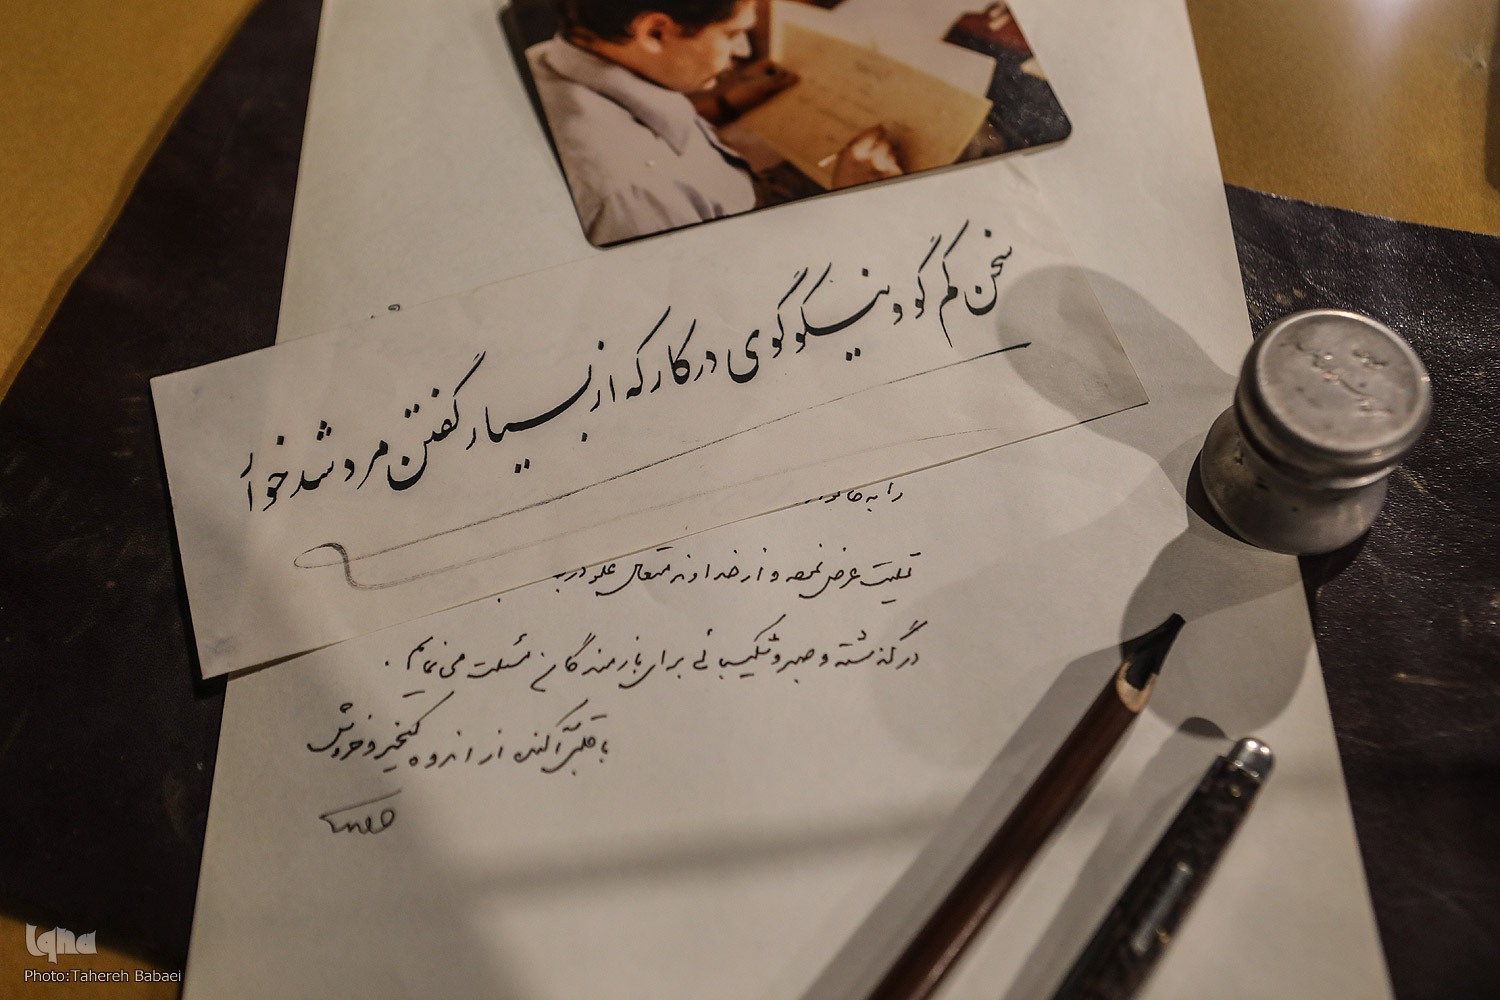 سخن کم گو و نیکو گوی در کار که از بسیار گفتن مرد شد خوار
را به
تسلیت عرض نموده و از خداوند متعال علو درجه
درگذشته و صبر و شکیبائی برای بازماندگان مسئلت می نمایم .
با قلبی آکنده از اندوه کیخسرو خروش
Iqna
Photo:Tahereh Babaei